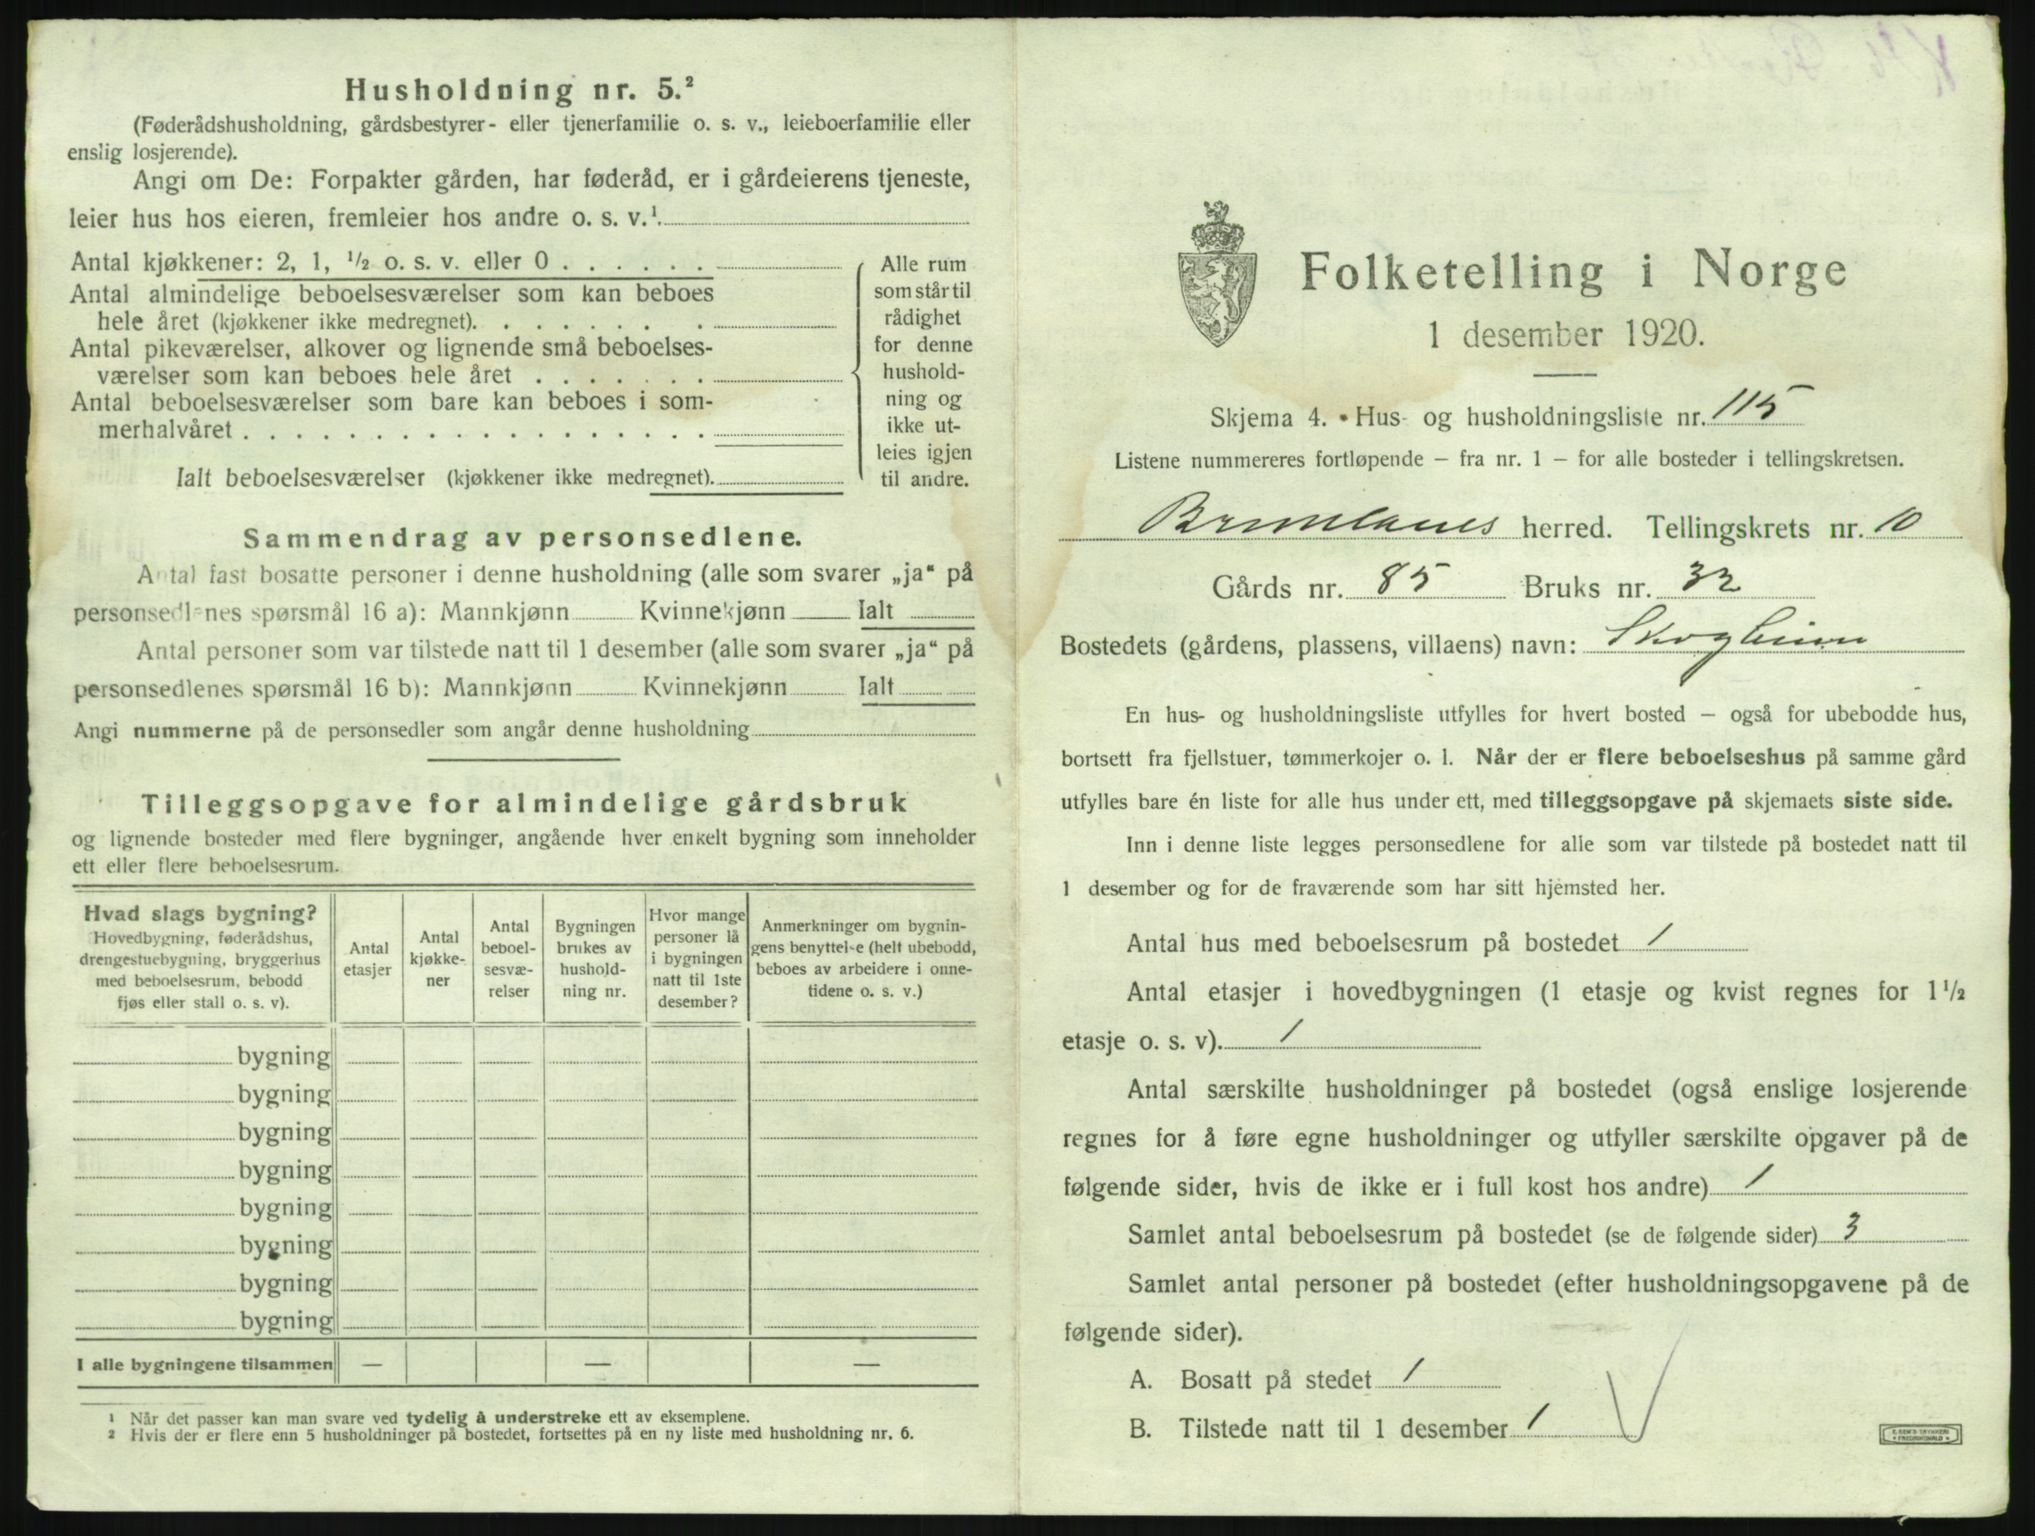 Husholdning nr. 5.²
(Føderådshusholdning, gårdsbestyrer- eller tjenerfamilie o. s. v., leieboerfamilie eller
enslig losjerende).
Angi om De: Forpakter gården, har føderåd, er i gårdeierens tjeneste,
leier hus hos eieren, fremleier hos andre o. s. v.¹
Antal kjøkkener: 2, 1, ½ o. s. v. eller 0 . . . . . .
Antal almindelige beboelsesværelser som kan beboes
hele året (kjøkkener ikke medregnet). . . . . . . . .
Antal pikeværelser, alkover og lignende små beboelses-
værelser som kan beboes hele året . . . . . . .
Antal beboelsesværelser som bare kan beboes i som-
merhalvåret . . . . . . . . . . . . . . . . . .
Ialt beboelsesværelser (kjøkkener ikke medregnet).
Alle rum
som står til
rådighet
for denne
hushold-
ning og
ikke ut-
leies igjen
til andre.
Sammendrag av personsedlene.
Antal fast bosatte personer i denne husholdning (alle som svarer „ja“ på
personsedlenes spørsmål 16 a): Mannkjønn Kvinnekjønn Ialt
Antal personer som var tilstede natt til 1 desember (alle som svarer „ja“ på
personsedlenes spørsmål 16 b): Mannkjønn Kvinnekjønn Ialt
Angi nummerne på de personsedler som angår denne husholdning
Tilleggsopgave for almindelige gårdsbruk
og lignende bosteder med flere bygninger, angående hver enkelt bygning som inneholder
ett eller flere beboelsesrum.
Hvad slags bygning?
Hovedbygning, føderådshus,
drengestuebygning, bryggerhus
med beboelsesrum, bebodd
fjøs eller stall o. s. v).
Antal
etasjer
Antal
kjøkke-
ner
Antal
beboel-
sesvæ-
relser
Bygningen
brukes av
hushold-
ning nr.
Hvor mange
personer lå
i bygningen
natt til 1ste
desember?
Anmerkninger om bygnin-
gens benyttelse (helt ubebodd,
beboes av arbeidere i onne-
tidene o. s. v.)
bygning
bygning
bygning
bygning
bygning
bygning
bygning
bygning
I alle bygningene tilsammen — — —
¹ Når det passer kan man svare ved tydelig å understreke ett av eksemplene.
² Hvis der er flere enn 5 husholdninger på bostedet, fortsettes på en ny liste med husholdning nr. 6.
Folketelling i Norge
1 desember 1920.
Skjema 4. • Hus- og husholdningsliste nr. 115
Listene nummereres fortløpende – fra nr. 1 – for alle bosteder i tellingskretsen.
Brunlanes herred. Tellingskrets nr. 10
Gårds nr. 85 Bruks nr. 32
Bostedets (gårdens, plassens, villaens) navn: Skogheim
En hus- og husholdningsliste utfylles for hvert bosted – også for ubebodde hus,
bortsett fra fjellstuer, tømmerkojer o. l. Når der er flere beboelseshus på samme gård
utfylles bare én liste for alle hus under ett, med tilleggsopgave på skjemaets siste side.
Inn i denne liste legges personsedlene for alle som var tilstede på bostedet natt til
1 desember og for de fraværende som har sitt hjemsted her.
Antal hus med beboelsesrum på bostedet 1
Antal etasjer i hovedbygningen (1 etasje og kvist regnes for 1½
etasje o. s. v). 1
Antal særskilte husholdninger på bostedet (også enslige losjerende
regnes for å føre egne husholdninger og utfyller særskilte opgaver på de
følgende sider, hvis de ikke er i full kost hos andre) 1
Samlet antal beboelsesrum på bostedet (se de følgende sider) 3
Samlet antal personer på bostedet (efter husholdningsopgavene på de
følgende sider).
A. Bosatt på stedet 1
B. Tilstede natt til 1 desember 1